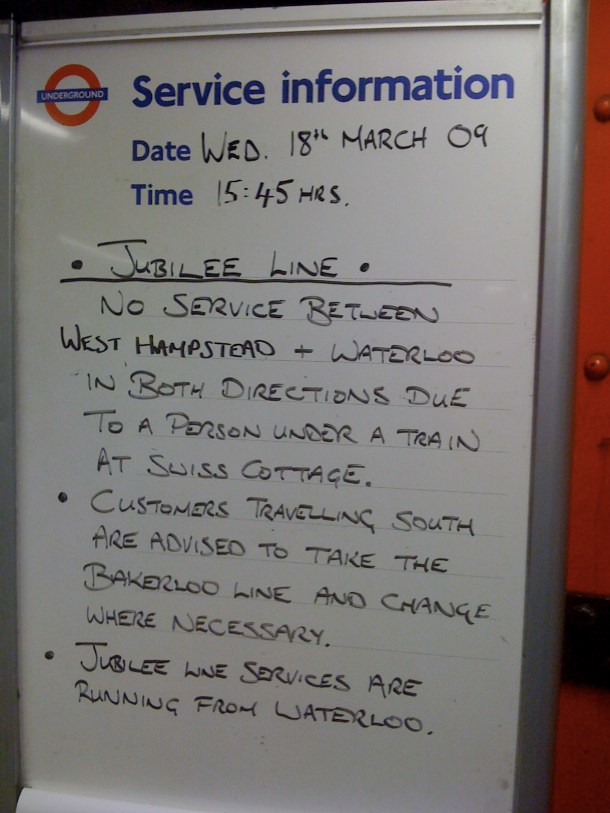 UNDERGROUND
Service information
Date WED. 18th MARCH 09
Time 15:45 HRS.
• JUBILEE LINE •
NO SERVICE BETWEEN
WEST HAMPSTEAD + WATERLOO
IN BOTH DIRECTIONS DUE
TO A PERSON UNDER A TRAIN
AT SWISS COTTAGE.
• CUSTOMERS TRAVELLING SOUTH
ARE ADVISED TO TAKE THE
BAKERLOO LINE AND CHANGE
WHERE NECESSARY.
• JUBILEE LINE SERVICES ARE
RUNNING FROM WATERLOO.